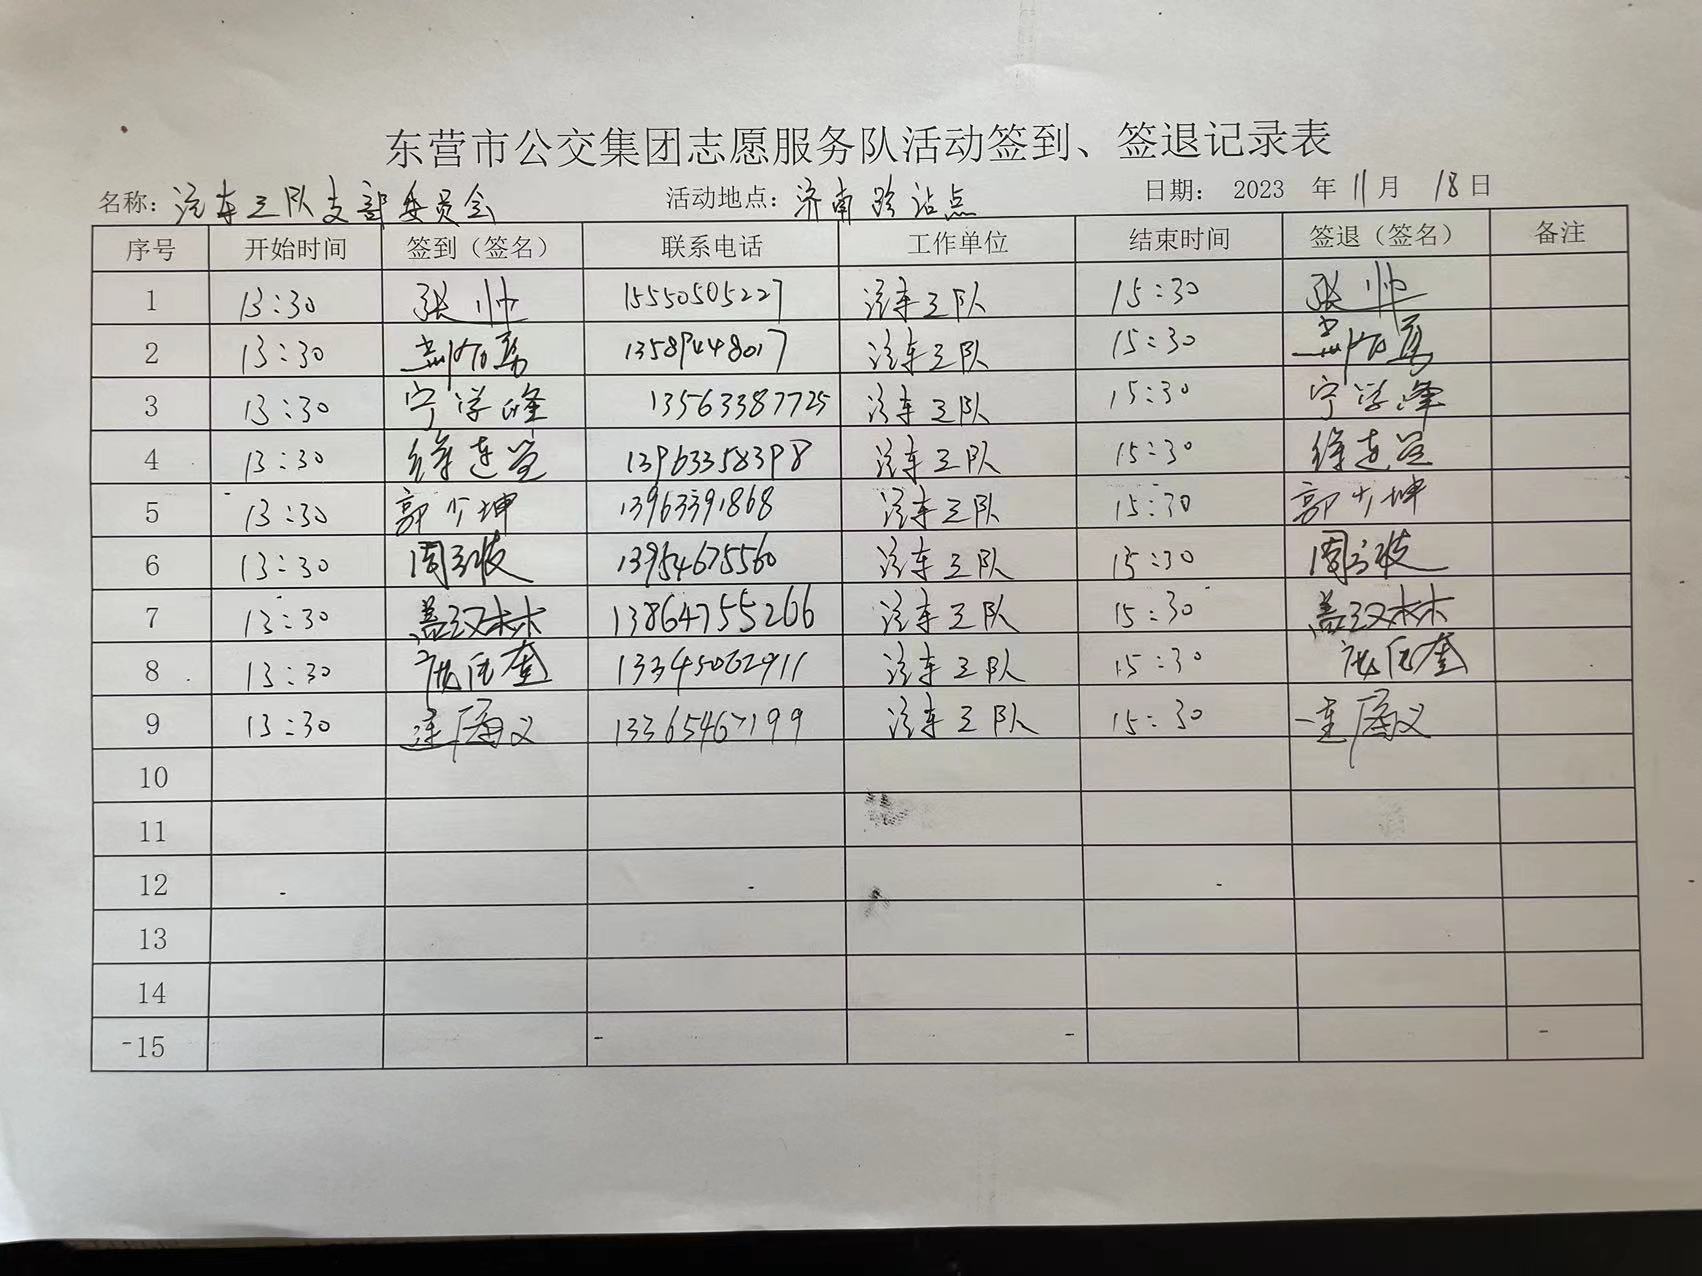 东营市公交集团志愿服务队活动签到、签退记录表
名称：汽车三队支部委员会 活动地点：济南路站点 日期： 2023 年 11月 18日
序号 开始时间 签到（签名） 联系电话 工作单位 结束时间 签退（签名） 备注
1 13:30 张帅 15550505227 汽车三队 15:30 张帅
2 13:30 13589448017 汽车三队 15:30
3 13:30 宁学峰 13563387725 汽车三队 15:30 宁学峰
4 13:30 徐连 13963358398 汽车三队 15:30 徐连
5 13:30 郭少坤 13963391868 汽车三队 15:30 郭少坤
6 13:30 周 波 13954675560 汽车三队 15:30 周 波
7 13:30 盖汉林 13864755266 汽车三队 15:30 盖汉林
8 13:30 奎 13345062911 汽车三队 15:30 奎
9 13:30 义 13365467199 汽车三队 15:30 义
10
11
12
13
14
15